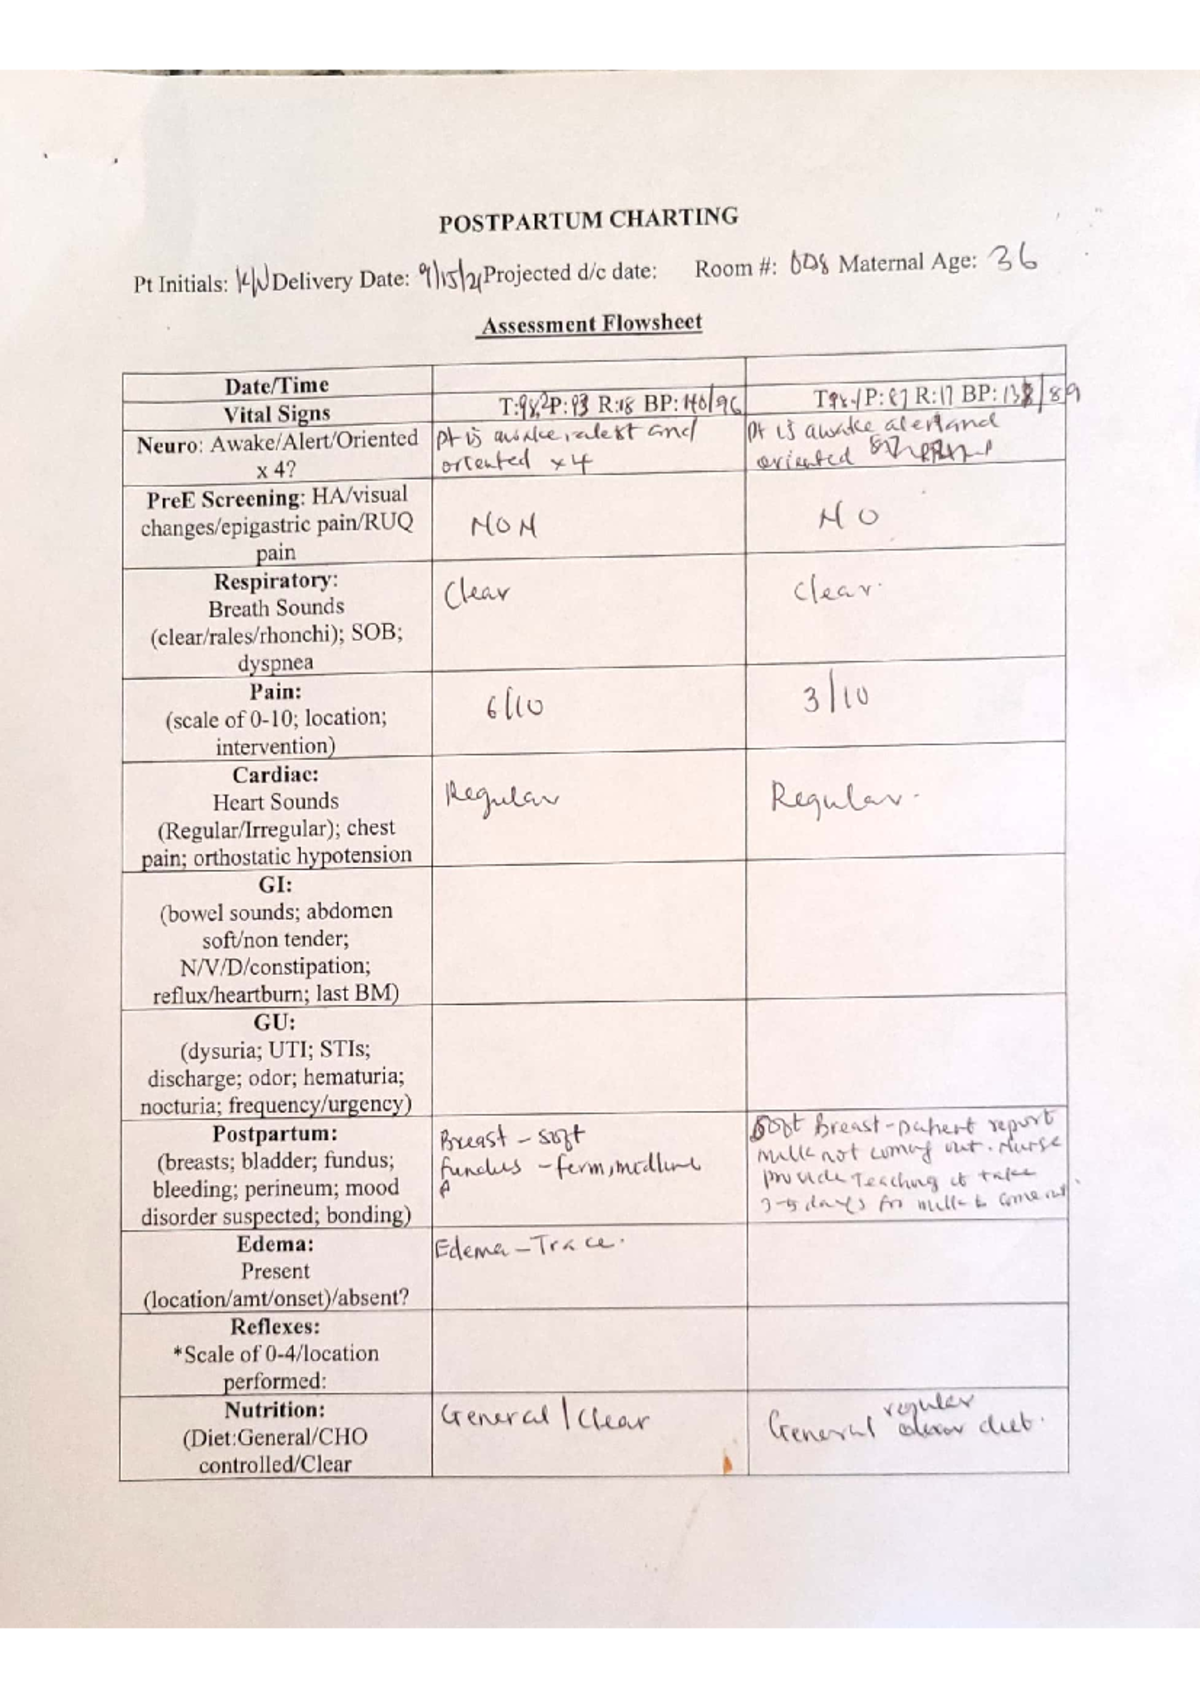 POSTPARTUM CHARTING
Pt Initials: KW Delivery Date: 9/15/21 Projected d/c date: Room #: 608 Maternal Age: 36
Assessment Flowsheet
Date/Time
Vital Signs T:98.2 P:93 R:18 BP:140/96 T98.1 P:87 R:17 BP:138/89
Neuro: Awake/Alert/Oriented
x 4?
Pt is awake, alert and
oriented x4
Pt is awake alert and
oriented
PreE Screening: HA/visual
changes/epigastric pain/RUQ
pain
NON
NO
Respiratory:
Breath Sounds
(clear/rales/rhonchi); SOB;
dyspnea
Clear
clear.
Pain:
(scale of 0-10; location;
intervention)
6/10
3/10
Cardiac:
Heart Sounds
(Regular/Irregular); chest
pain; orthostatic hypotension
Regular
Regular.
GI:
(bowel sounds; abdomen
soft/non tender;
N/V/D/constipation;
reflux/heartburn; last BM)
GU:
(dysuria; UTI; STIs;
discharge; odor; hematuria;
nocturia; frequency/urgency)
Postpartum:
(breasts; bladder; fundus;
bleeding; perineum; mood
disorder suspected; bonding)
Breast - soft
fundus - ferm, midline
Soft Breast - patient report
milk not coming out. Nurse
provide Teaching it take
3-5 days for milk to come out.
Edema:
Present
(location/amt/onset)/absent?
Edema - Trace.
Reflexes:
*Scale of 0-4/location
performed:
Nutrition:
(Diet:General/CHO
controlled/Clear
General / Clear
regular
General diet.